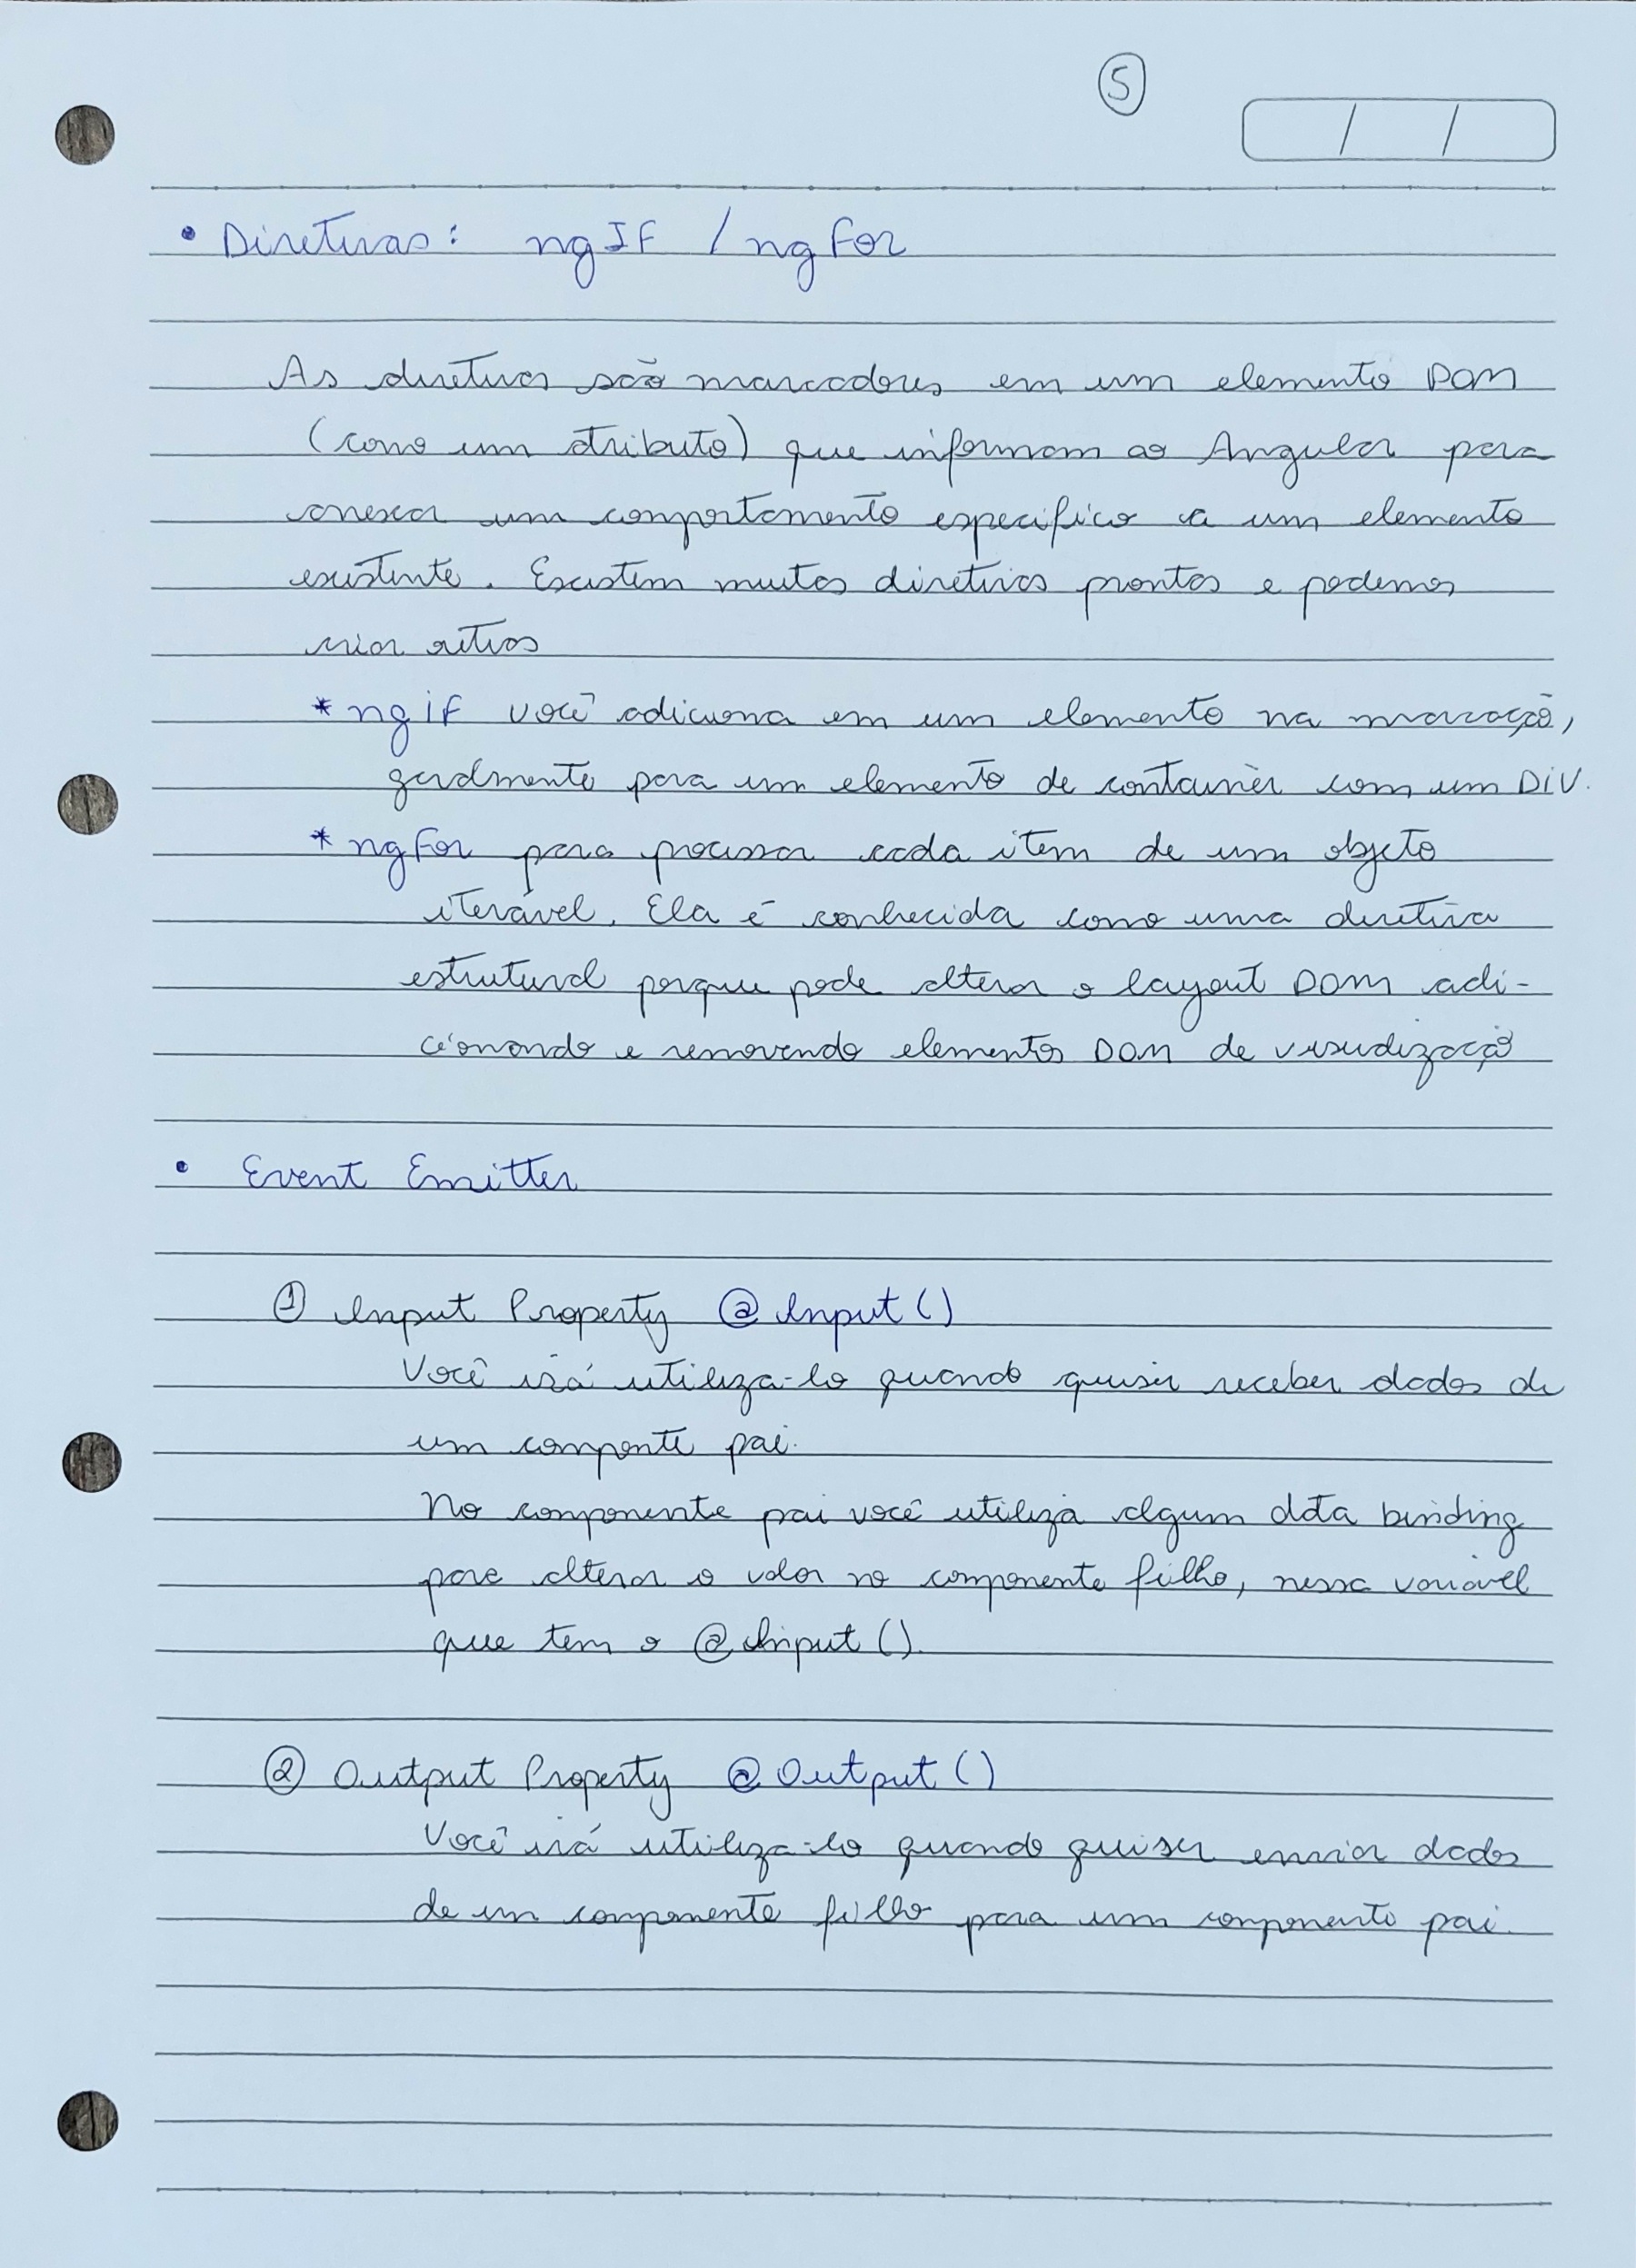 5
/ /
• Diretivas: ngIF / ngFor
As diretivas são marcadores em um elemento DOM
(como um atributo) que informam ao Angular para
anexar um comportamento especifico a um elemento
existente. Existem muitas diretivas prontas e podemos
criar
*ngiF você adiciona em um elemento na marcação,
geralmente para um elemento de container com um DiV.
*ngFor para processar cada item de um objeto
iterável. Ela é conhecida como uma diretiva
estrutural porque pode alterar o layout DOM adi-
cionando e removendo elementos DOM de visualização
• Event Emitter
① Input Property @Input()
Você irá utiliza-lo quando quiser receber dados de
um componte pai.
No componente pai você utiliza algum data binding
para alterar o valor no componente filho, nessa variável
que tem o @Input().
② Output Property @Output()
Você irá utiliza-lo quando quiser enviar dados
de um componente filho para um componente pai.